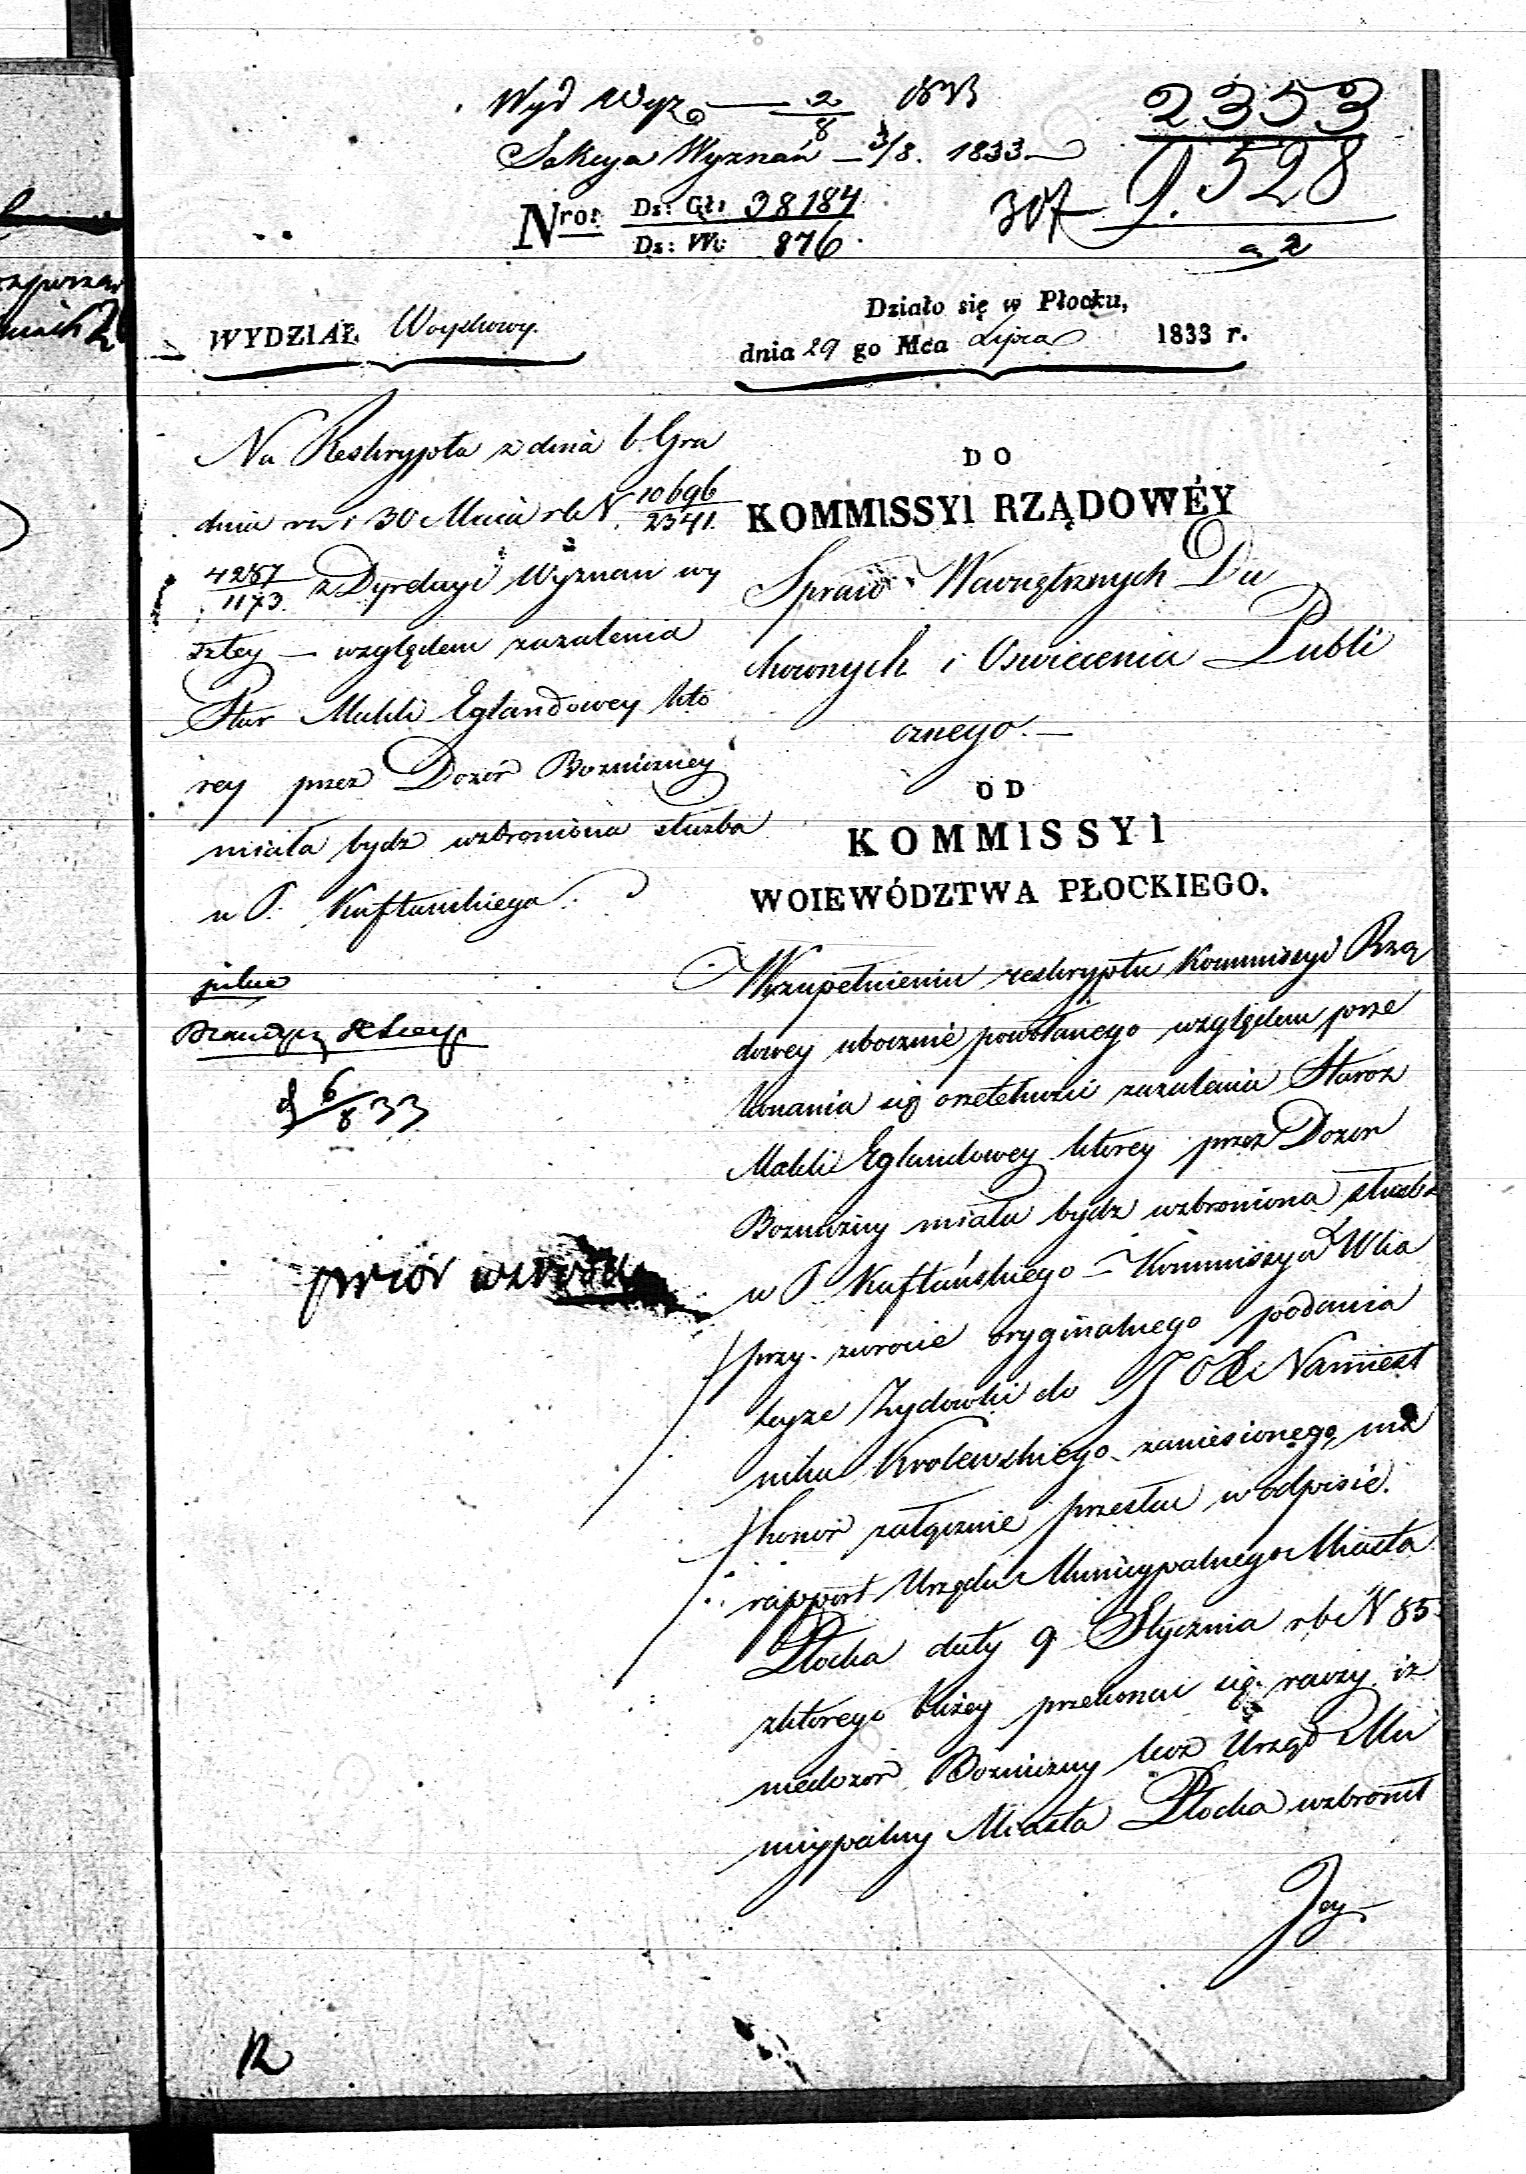 Wyd Wyz 2/8 1833
Sekcya Wyznań 3/8. 1833
2353
9.528
a 2
307
Nro: Dz: Gł: 38184
Dz: W: 876.
WYDZIAŁ Woyskowy.
Działo się w Płocku,
dnia 29 go Mca Lipca 1833 r.
Na Reskrypta z dnia 6 Gru
dnia rz i 30 Maia rb N. 10696/2341.
4287/1173 z Dyrekcyi Wyznań wy
szłey — względem zażalenia
Star Malki Eglandowey któ
rey przez Dozór Bożniczney
miała bydz wzbroniona służba
u P. Kaftańskiego.
pilne
6/8 33
DO
KOMMISSYI RZĄDOWÉY
Spraw Wewnętrznych Du
chownych i Oswiecenia Publi
cznego. —
OD
KOMMISSYI
WOIEWÓDZTWA PŁOCKIEGO.
W zupełnieniu reskryptu Kommissyi Rzą
dowey ubocznie powołanego względem prze
konania się o rzetelności zażalenia Staroz
Malki Eglandowey ktorey przez Dozor
Bozniczny miała bydz wzbroniona służba
u P. Kaftańskiego — Kommissya Wtwa
przy zwrocie oryginalnego podania
teyze Zydowki do J O X Namiest
nika Krolewskiego zaniesionego, ma
honor załącznie przesłac w odpisie
rapport Urzędu Municypalnego Miasta
Płocka daty 9 Stycznia rb N 85
z ktorego bliżey przekonac się raczy iz
niedozór Bozniczny lecz Urząd Mu
nicypalny Miasta Płocka wzbronił
Jey
12